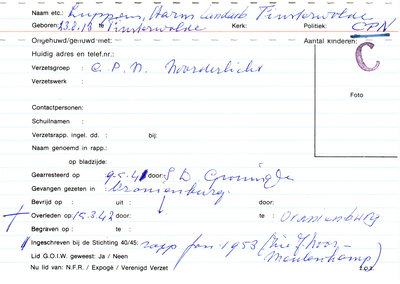 Naam etc.: Luppens, Harm Lundert Finsterwolde
Geboren: 23.2.18 te Finsterwolde Kerk: Politiek: CPN
Ongehuwd/gehuwd met: Aantal kinderen:
Huidig adres en telef.nr.: C
Verzetsgroep : C.P.N. Noorderlicht
Verzetswerk :
Foto
Contactpersonen:
Schuilnaam :
Verzetsrapp. ingel. dd. : bij:
Naam genoemd in rapp.:
op bladzijde:
Gearresteerd op 9.5.41 door: S D Groningen
Gevangen gezeten in : Oranienburg.
Bevrijd op : uit : door:
Overleden op : 15.3.42 door: te : Oranienburg
Begraven op : te :
Ingeschreven bij de Stichting 40/45: rapp jan 1953 (zie Thoor-Meulenkamp)
Lid G.O.I.W. geweest: Ja / Neen
Nu lid van: N.F.R. / Expogé / Verenigd Verzet z.o.z.